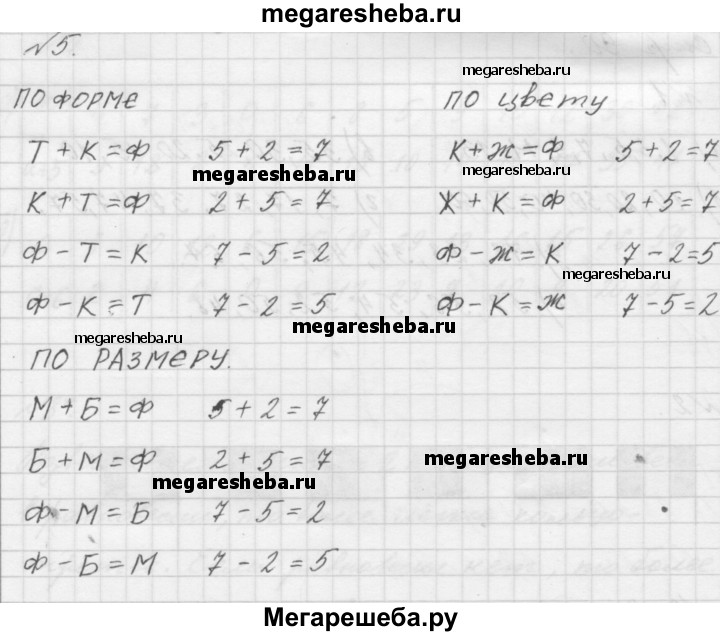 megaresheba.ru
№5.
megaresheba.ru
ПО ФОРМЕ
Т + К = Ф 5 + 2 = 7
megaresheba.ru
К + Т = Ф 2 + 5 = 7
Ф - Т = К 7 - 5 = 2
Ф - К = Т 7 - 2 = 5
megaresheba.ru
ПО ЦВЕТУ
К + Ж = Ф 5 + 2 = 7
megaresheba.ru
Ж + К = Ф 2 + 5 = 7
Ф - Ж = К 7 - 2 = 5
megaresheba.ru
Ф - К = Ж 7 - 5 = 2
megaresheba.ru
ПО РАЗМЕРУ.
М + Б = Ф 5 + 2 = 7
Б + М = Ф 2 + 5 = 7
megaresheba.ru
megaresheba.ru
Ф - М = Б 7 - 5 = 2
Ф - Б = М 7 - 2 = 5
Мегарешеба.ру